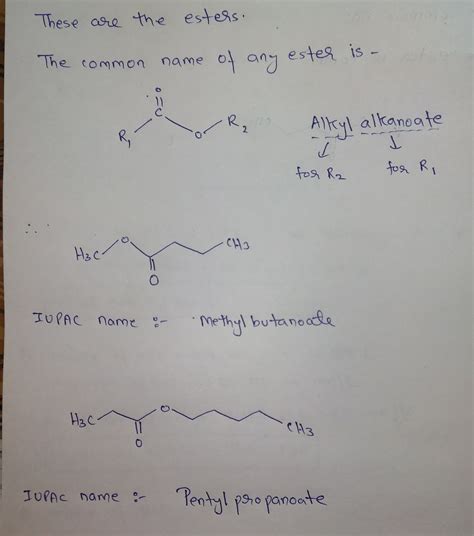 These are the esters.
The common name of any ester is -
O
C
R1 O R2
Alkyl alkanoate
for R2 for R1
∴
H3C O CH3
O
IUPAC name :- Methyl butanoate
H3C O CH3
O
IUPAC name :- Pentyl propanoate